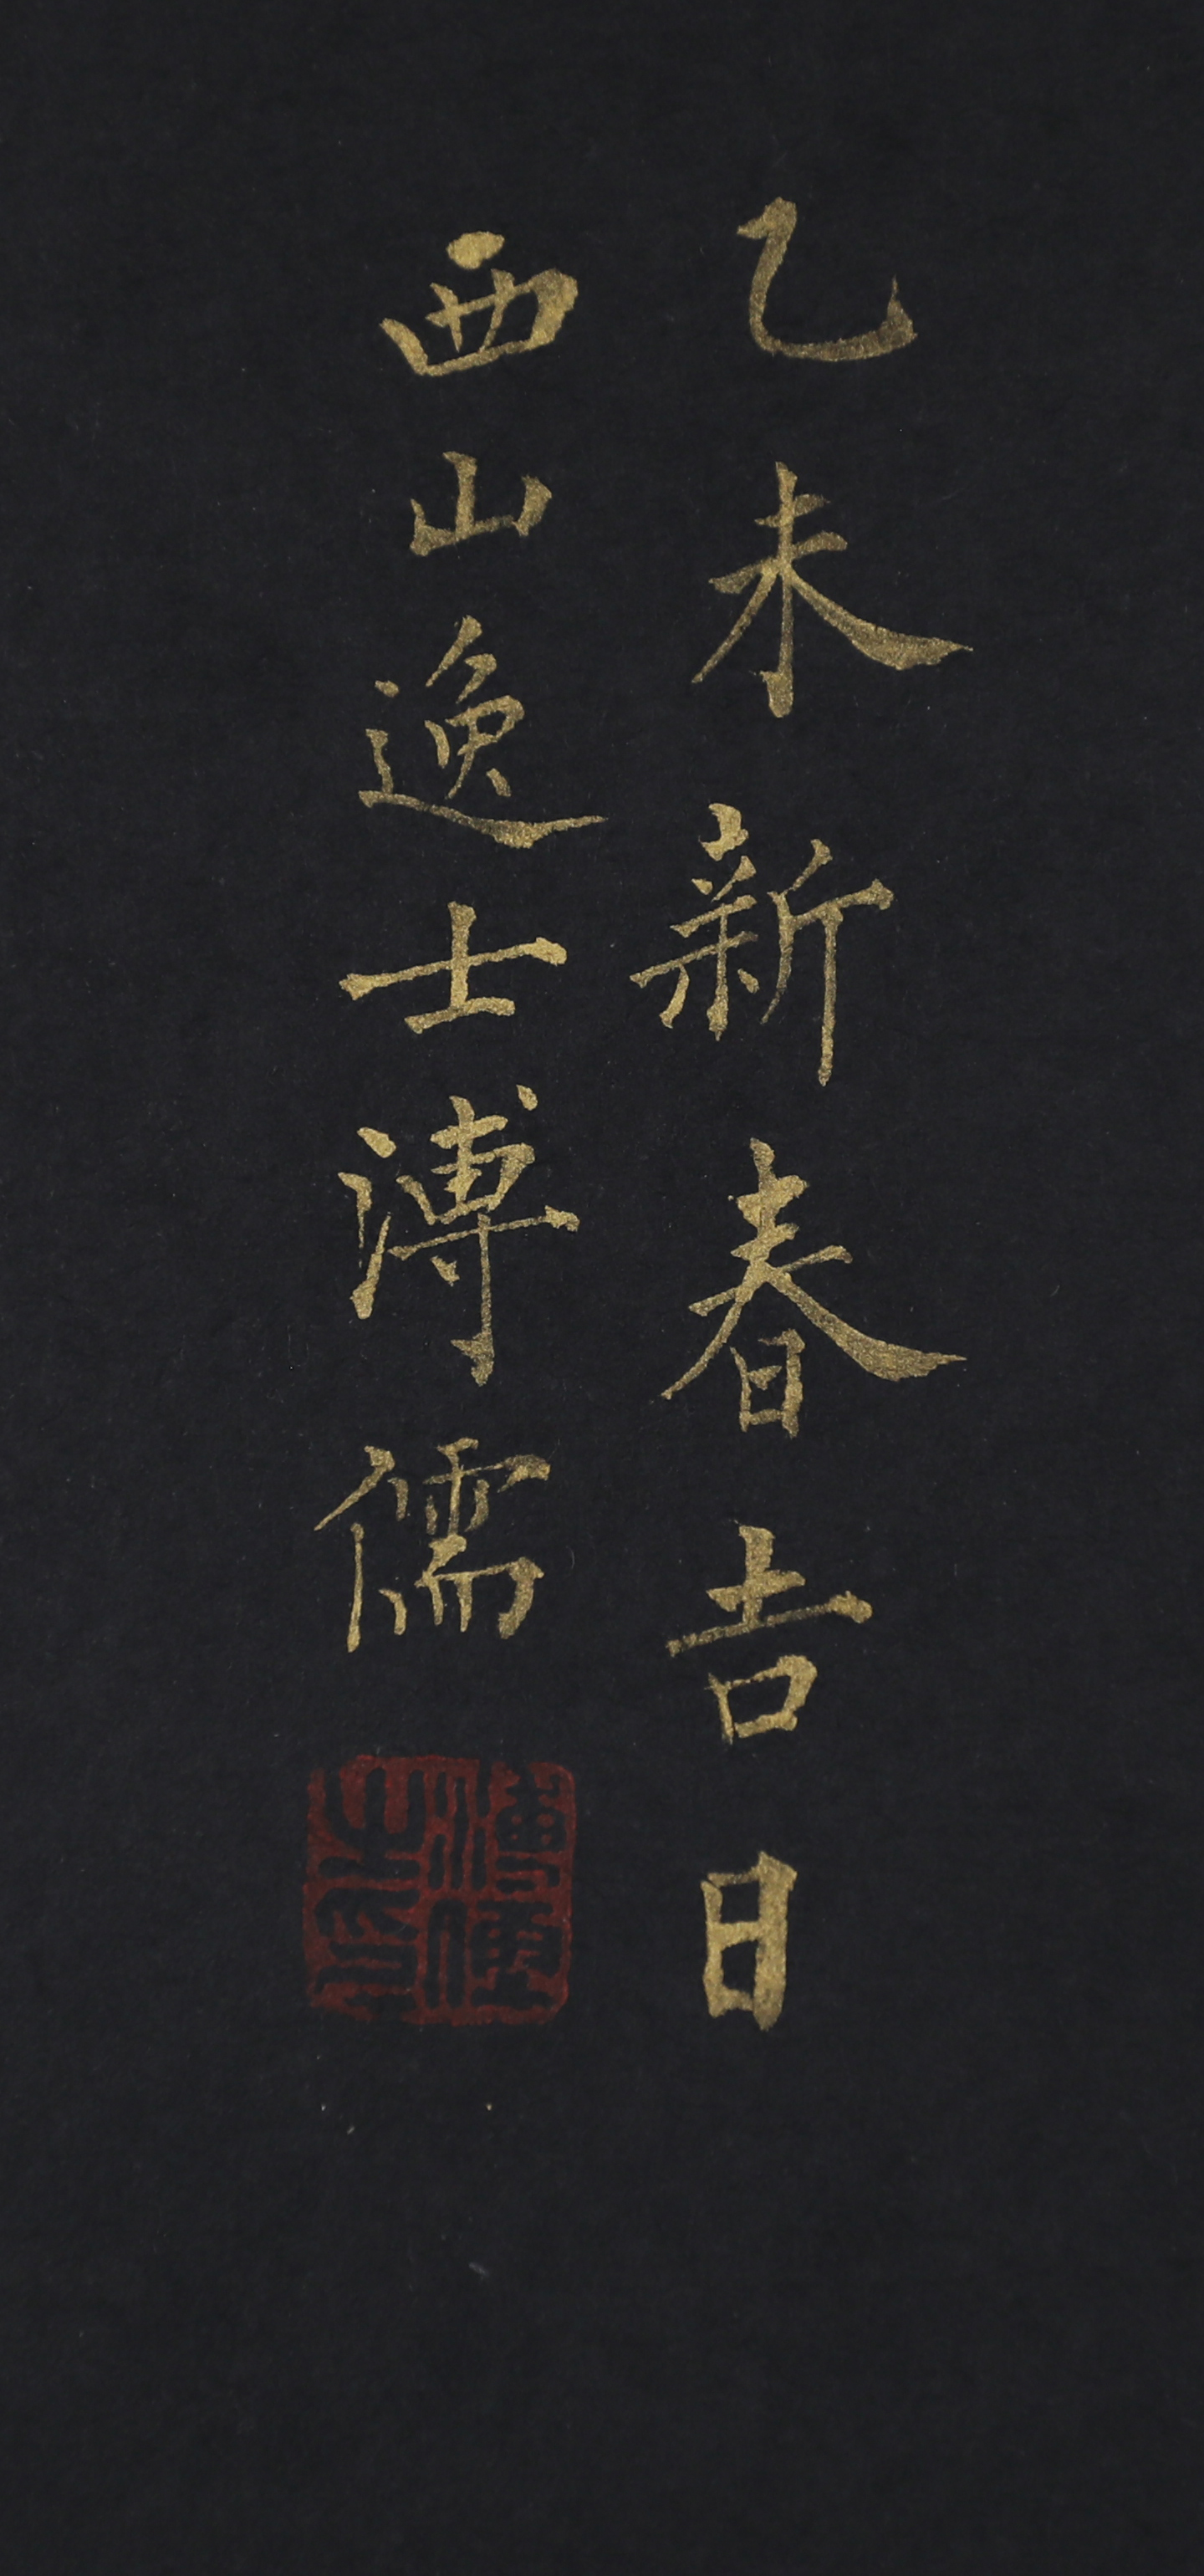 乙未新春吉日
西山逸士溥儒
溥儒之印